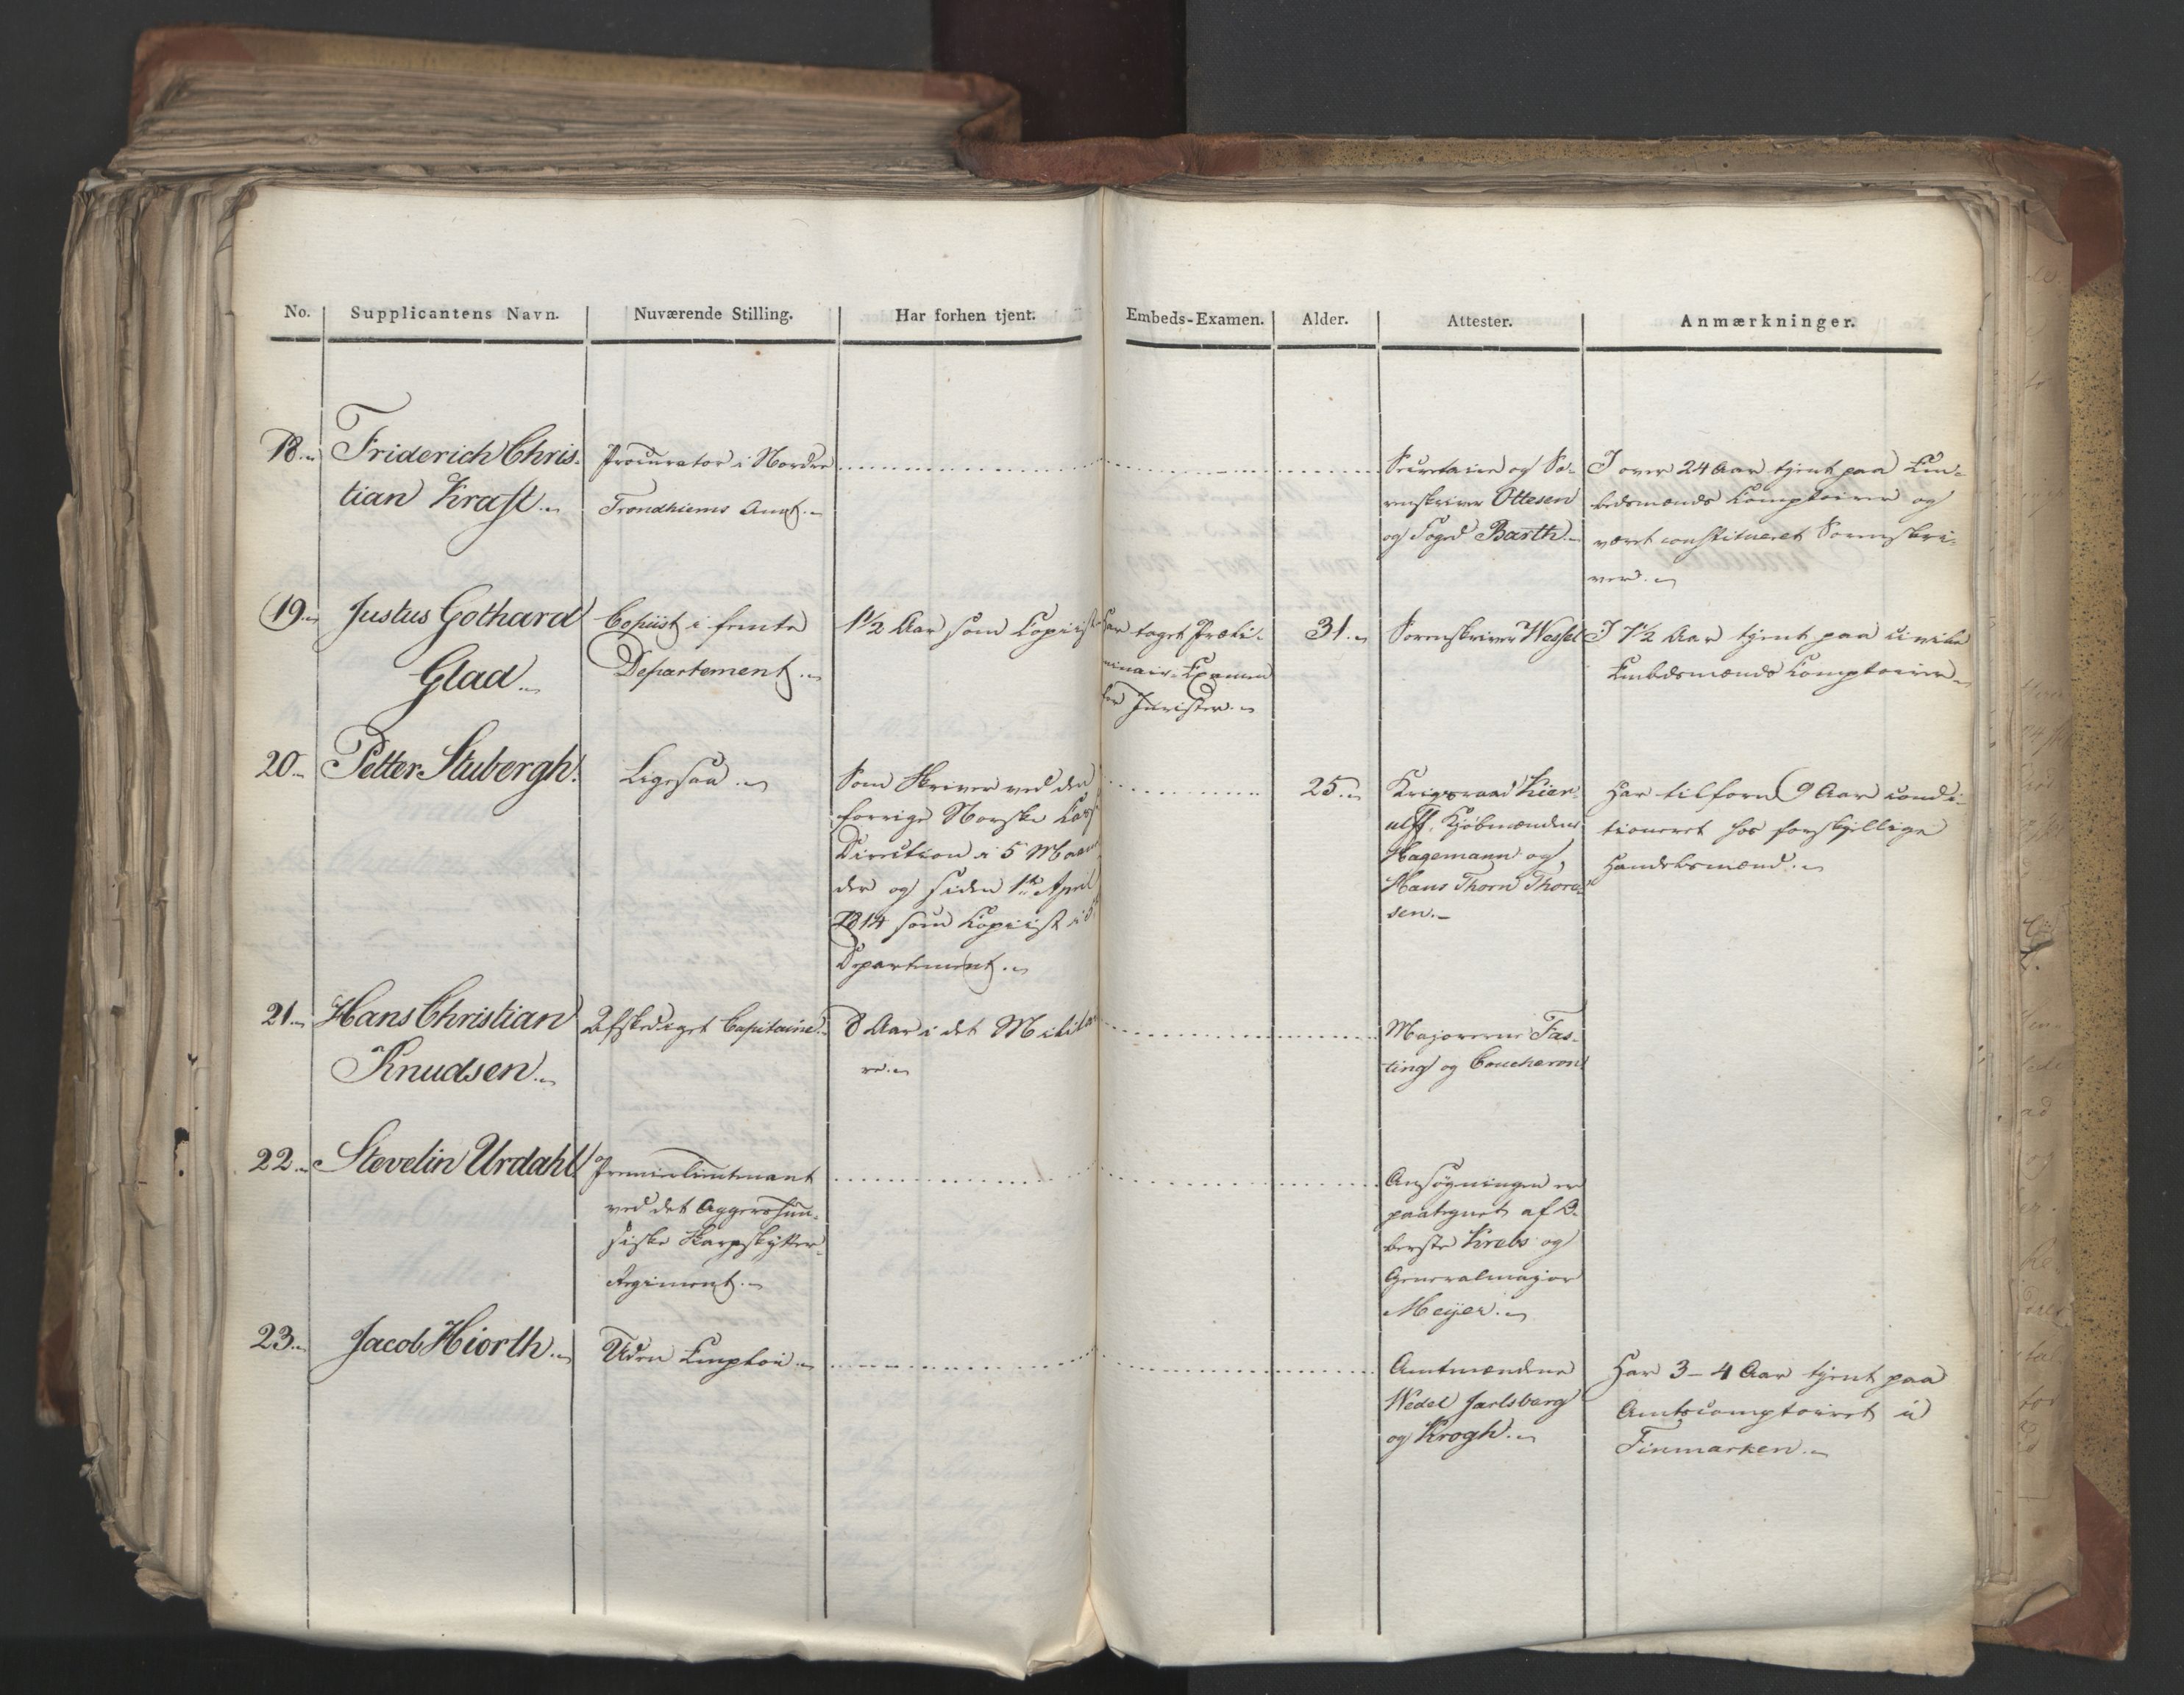 No. Supplicantens Navn. Nuværende Stilling. Har forhen tjent. Embeds-Examen. Alder. Attester. Anmærkninger.
18. Friderich Chris-
tian Krast.
Procurator i Nordre
Trondhiems Amt.
Secretaire og So-
renskriver Ottesen
og Foged Barth.
I over 24 Aar tjent paa Em-
bedsmænds Comptoirer og
været constitueret Sorenskri-
ver.
19. Justus Gothard
Glad.
Copiist i femte
Departement.
1½ Aar som Copiist
Har taget Præli-
minair-Examen
for Jurister.
31.
Sorenskriver Wessel
I 7½ Aar tjent paa civile
Embedsmænds Comptoirer.
20. Petter Stubergh.
Ligesaa.
Som Skriver ved den
forrige Norske
Direction i 5 Maane
der og siden 1ste April
1814 som Copiist i 5
Departement.
25.
Krigsraad Kier-
ulff, Kjøbmændene
Hagemann og
Hans Thorn Thora-
sen.
Har tilforn 9 Aar condi-
tioneret hos forskjellige
Handelsmænd.
21. Hans Christian
Knudsen.
Afskediget Capitaine.
8 Aar i det Militai
re.
Majorerne Fas-
ting og Coucheron
22. Stevelin Urdahl
Premierlieutenant
ved det Aggershuu-
siske Skarpskytter-
Regiment.
Ansøgningen er
paategnet af O-
berste Krebs og
Generalmajor
Meijer.
23. Jacob Hiorth.
Uden Emploi.
Amtmændene
Wedel Jarlsberg
og Krogh.
Har 3-4 Aar tjent paa
Amtscomptoiret i
Finmarken.